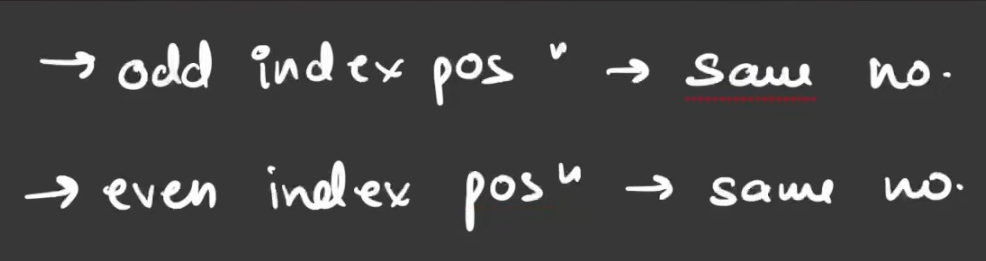 → odd index posⁿ → same no.
→ even index posⁿ → same no.